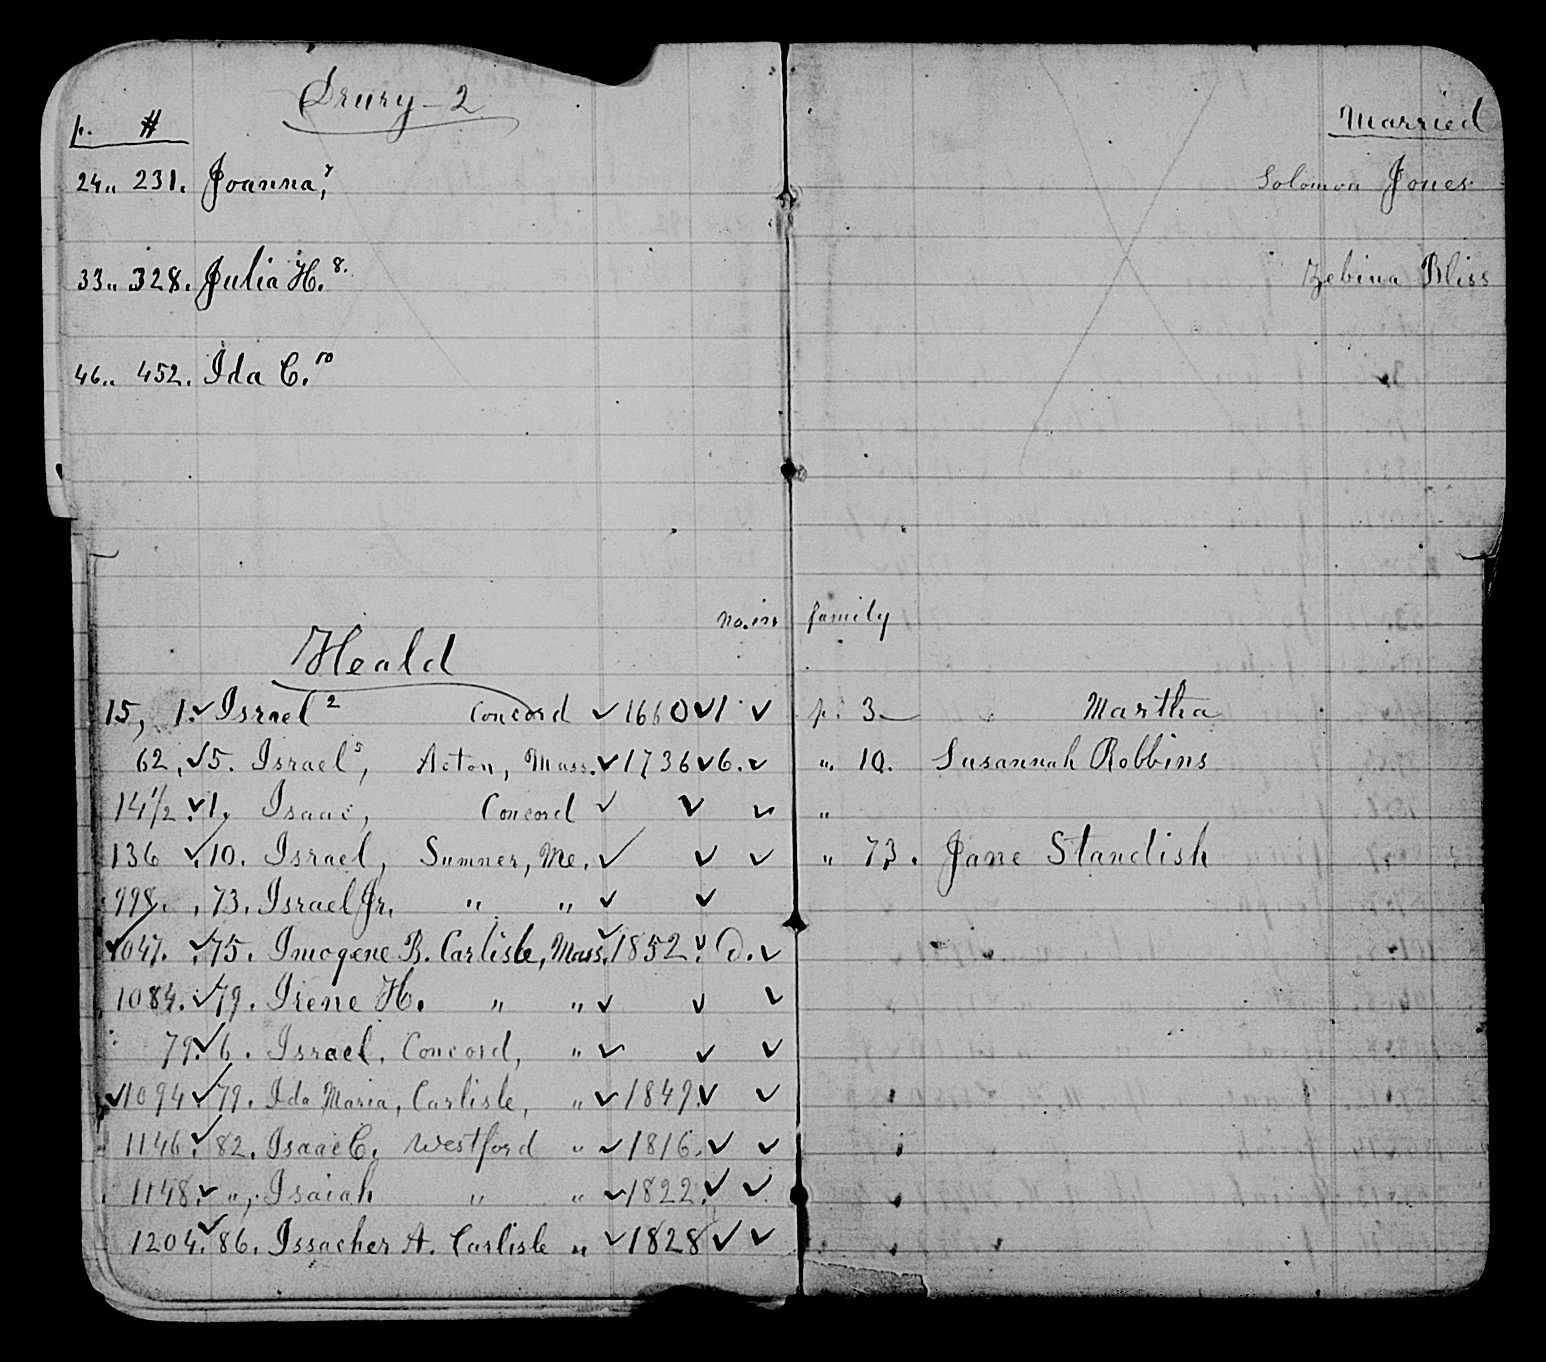 Drury - 2
p. # Married
24.. 231. Joanna,⁷ Solomon Jones
33.. 328. Julia H.⁸· Zebina Bliss
46.. 452. Ida C.¹⁰
no. in family
Heald
15, 1. ✓ Israel² Concord ✓ 1660 ✓ 1 ✓ p. 3 Martha
62, ✓ 5. Israel⁵, Acton, Mass. ✓ 1736 ✓ 6. ✓ " 10. Susannah Robbins
14½ ✓ 1, Isaac, Concord ✓ ✓ ✓ "
136 ✓ 10. Israel, Sumner, Me. ✓ ✓ ✓ " 73. Jane Standish
998. , 73. Israel Jr. " " ✓ ✓
✓ 1047. ✓ 75. Imogene B. Carlisle, Mass. ✓ 1852. ✓ D. ✓
1084. ✓ 79. Irene H. " " ✓ ✓ ✓
79. ✓ 6. Israel, Concord, " ✓ ✓ ✓
✓ 1094 ✓ 79. Ida Maria, Carlisle, " ✓ 1849. ✓ ✓
1146. ✓ 82. Isaac C. Westford " ✓ 1816. ✓ ✓
1148. ✓ ", Isaiah " " ✓ 1822. ✓ ✓
1204. ✓ 86. Issacher A. Carlisle " ✓ 1828 ✓ ✓